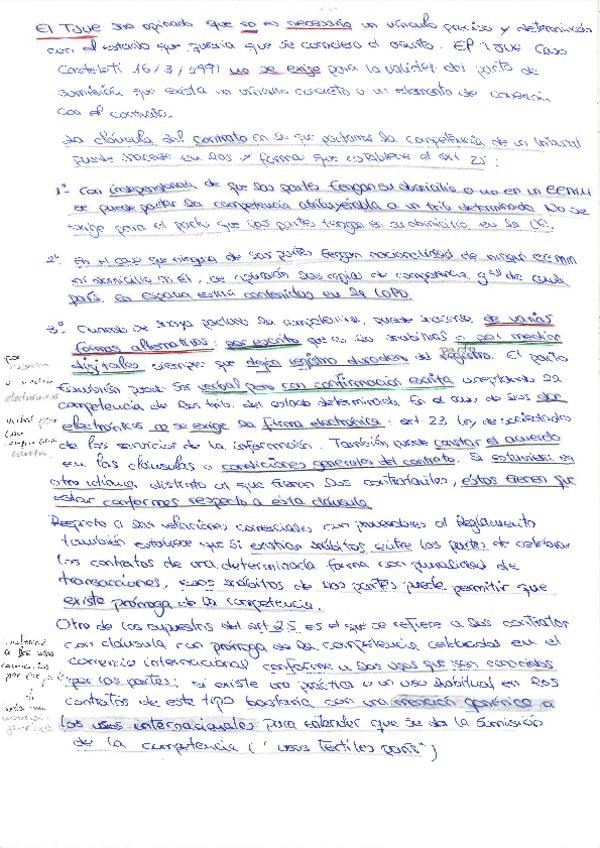 El TJUE ha opinado que no es necesario un vínculo preciso y determinado
con el estado que quería que se conociera el asunto. El TJUE Caso
Casteleti 16/3/1991 no se exige para la validez del pacto de
sumisión que exista un vínculo concreto o un elemento de conexión
con el contrato.
La cláusula del contrato en la que pactamos la competencia de un tribunal
puede hacerse en las forma que establece el art 25:
1º Con independencia de que las partes tengan su domicilio o no en un EEMM
se puede pactar la competencia atribuyéndola a un trib determinado. No se
exige para el pacto que las partes tengan su domicilio en la UE.
2º En el caso que ninguna de las partes tengan nacionalidad de ningún EEMM
ni domicilio en él, se aplicarán las reglas de competencia gral de cada
país. En España están contenidas en la LOPJ.
3º Cuando se haya pactado la competencia, puede hacerse de varias
formas alternativas: por escrito que es lo habitual o por medios
digitales siempre que dejen registro duradero del pacto. El pacto
también puede ser verbal pero con confirmación escrita aceptando la
competencia de los trib. del estado determinado. En el caso de los
electrónicos no se exige la firma electrónica: art 23 ley de sociedades
de los servicios de la información. También puede constar el acuerdo
en las cláusulas o condiciones generales del contrato. Si estuviese en
otro idioma, distinto al que tienen los contratantes, estos tienen que
estar conformes respecto a esta cláusula.
Respecto a las relaciones comerciales con proveedores el Reglamento
también establece que si existían hábitos entre las partes de celebrar
los contratos de una determinada forma con pluralidad de
transacciones, esos hábitos de las partes puede permitir que
exista prórroga de la competencia.
Otro de los supuestos del art 25 es el que se refiere a los contratos
con cláusula con prórroga de la competencia celebrados en el
comercio internacional conforme a los usos que sean conocidos
por las partes; si existe una práctica o un uso habitual en los
contratos de este tipo bastaría con una mención genérica a
los usos internacionales para entender que se da la sumisión
de la competencia ("usos textiles París")